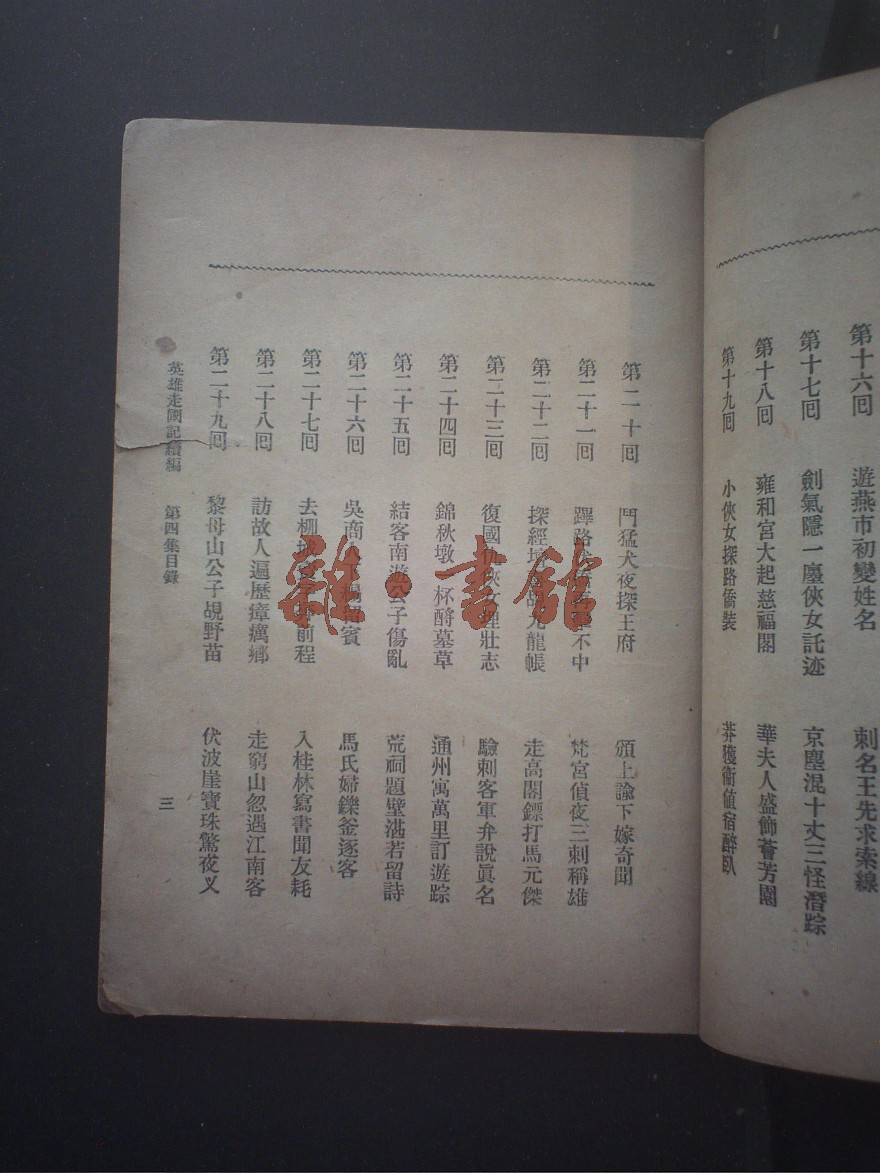 第十六回 遊燕市初變姓名 刺名王先求索線
第十七回 劍氣隱一廛俠女託迹 京塵混十丈三怪潛踪
第十八回 雍和宮大起慈福閣 華夫人盛飾薈芳園
第十九回 小俠女探路僑裝 莽獲衞偵宿醉臥
第二十回 鬥猛犬夜探王府 頒上諭下嫁奇聞
第二十一回 蹕路 不中 梵宮偵夜三刺稱雄
第二十二回 探經壇 九龍帳 走高閣鏢打馬元傑
第二十三回 復國仇俠女 壯志 驗刺客軍弁說眞名
第二十四回 錦秋墩 杯酹墓草 通州寓萬里訂遊踪
第二十五回 結客南遊公子傷亂 荒祠題壁湛若留詩
第二十六回 吳商人 留賓 馬氏婦鑠釜逐客
第二十七回 去柳城 前程 入桂林寫書聞友耗
第二十八回 訪故人遍歷瘴癘鄉 走窮山忽遇江南客
第二十九回 黎母山公子覘野苗 伏波崖寶珠驚夜叉
英雄走國記續編 第四集目錄 三
雜·書館